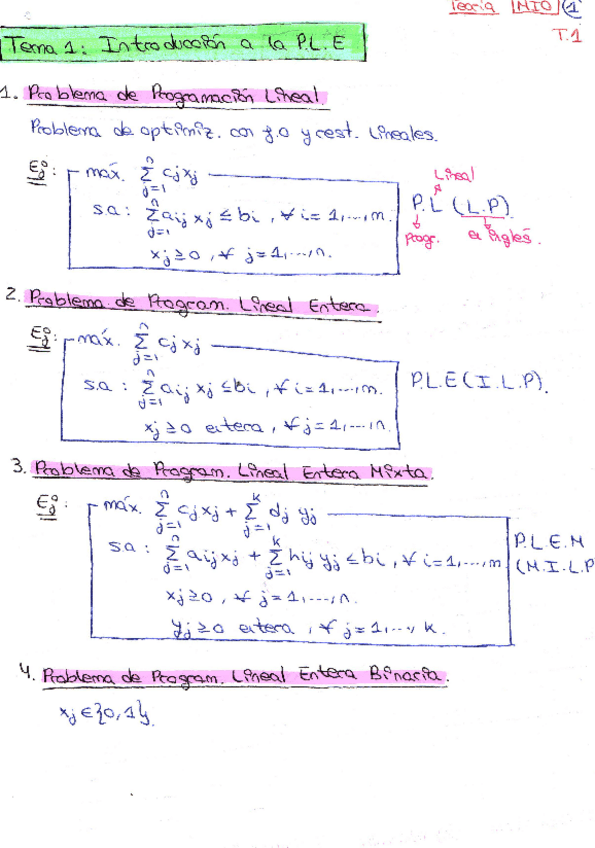 Teoría MIO 1
T.1
Tema 1: Introducción a la P.L.E
1. Problema de Programación Lineal
Problema de optimiz. con f.o y rest. lineales.
Ej: máx. ∑_{j=1}^{n} cjxj
s.a: ∑_{j=1}^{n} aij xj ≤ bi, ∀ i=1,...,m.
xj ≥ 0, ∀ j=1,...,n.
Lineal
P.L (L.P)
Progr. en inglés.
2. Problema de Program. Lineal Entera.
Ej: máx. ∑_{j=1}^{n} cjxj
s.a: ∑_{j=1}^{n} aij xj ≤ bi, ∀ i=1,...,m.
P.L.E (I.L.P).
xj ≥ 0 entera, ∀ j=1,...,n.
3. Problema de Program. Lineal Entera Mixta.
Ej: máx. ∑_{j=1}^{n} cjxj + ∑_{j=1}^{k} dj yj
s.a: ∑_{j=1}^{n} aijxj + ∑_{j=1}^{k} hij yj ≤ bi, ∀ i=1,...,m
P.L.E.M
(M.I.L.P
xj ≥ 0, ∀ j=1,...,n.
yj ≥ 0 entera, ∀ j=1,..., k.
4. Problema de Program. Lineal Entera Binaria.
xj ∈ {0,1}.